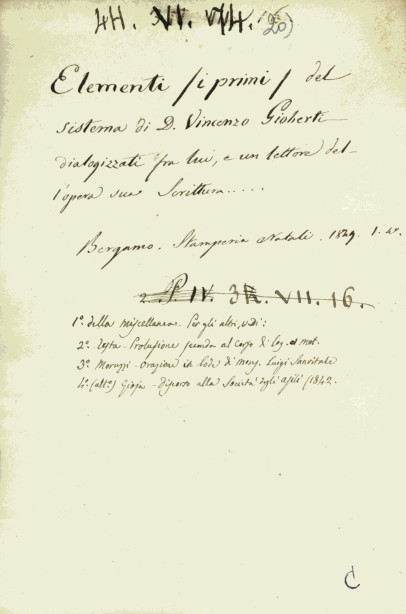 44. VI. 7/4. 20)
Elementi /i primi/ del
sistema di D. Vincenzo Gioberti
dialogizzati fra lui, e un lettore del-
l'opera sua Scrittura.....
Bergamo. Stamperia Natali. 1849. 1. v.
2. P. IV. 3 R. VII. 16.
1º. della miscellanea. Per gli altri, vedi:
2º. Testa - Prolusione seconda al corso di log. et met.
3º. Moruzzi - Orazione in lode di mons. Luigi Sanvitale
4º. Gioja - Discorso alla Società degli asili (1842.
C